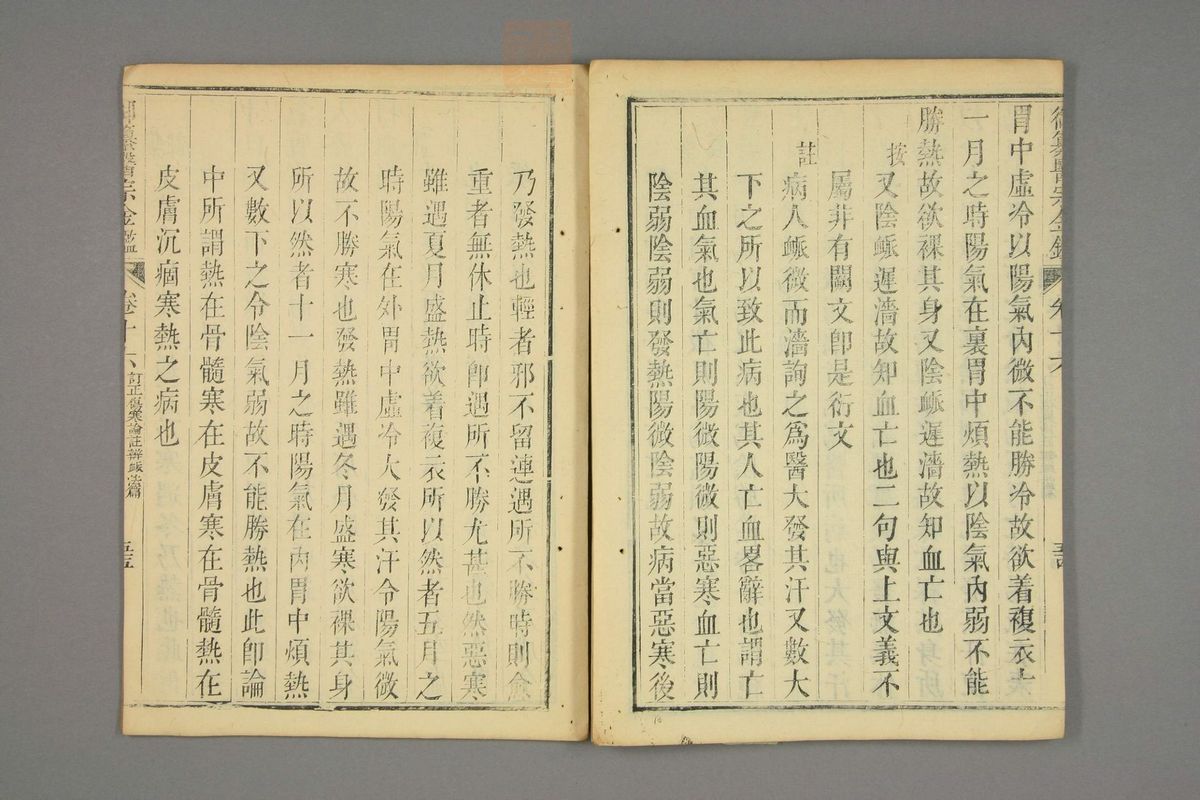 胃中虛冷以陽氣內微不能勝冷故欲着複衣十
一月之時陽氣在裏胃中煩熱以陰氣內弱不能
勝熱故欲裸其身又陰脈遲濇故知血亡也
按又陰脈遲濇故知血亡也二句與上文義不
屬非有闕文卽是衍文
註病人脈微而濇詢之爲醫大發其汗又數大
下之所以致此病也其人亡血畧辭也謂亡
其血氣也氣亡則陽微陽微則惡寒血亡則
陰弱陰弱則發熱陽微陰弱故病當惡寒後
乃發熱也輕者邪不留連遇所不勝時則僉
重者無休止時卽遇所不勝尤甚也然惡寒
雖遇夏月盛熱欲着複衣所以然者五月之
時陽氣在外胃中虛冷大發其汗令陽氣微
故不勝寒也發熱雖遇冬月盛寒欲裸其身
所以然者十一月之時陽氣在內胃中煩熱
又數下之令陰氣弱故不能勝熱也此卽論
中所謂熱在骨髓寒在皮膚寒在骨髓熱在
皮膚沉痼寒熱之病也
御纂醫宗金鑑 卷十六 訂正傷寒論註辨脈法篇